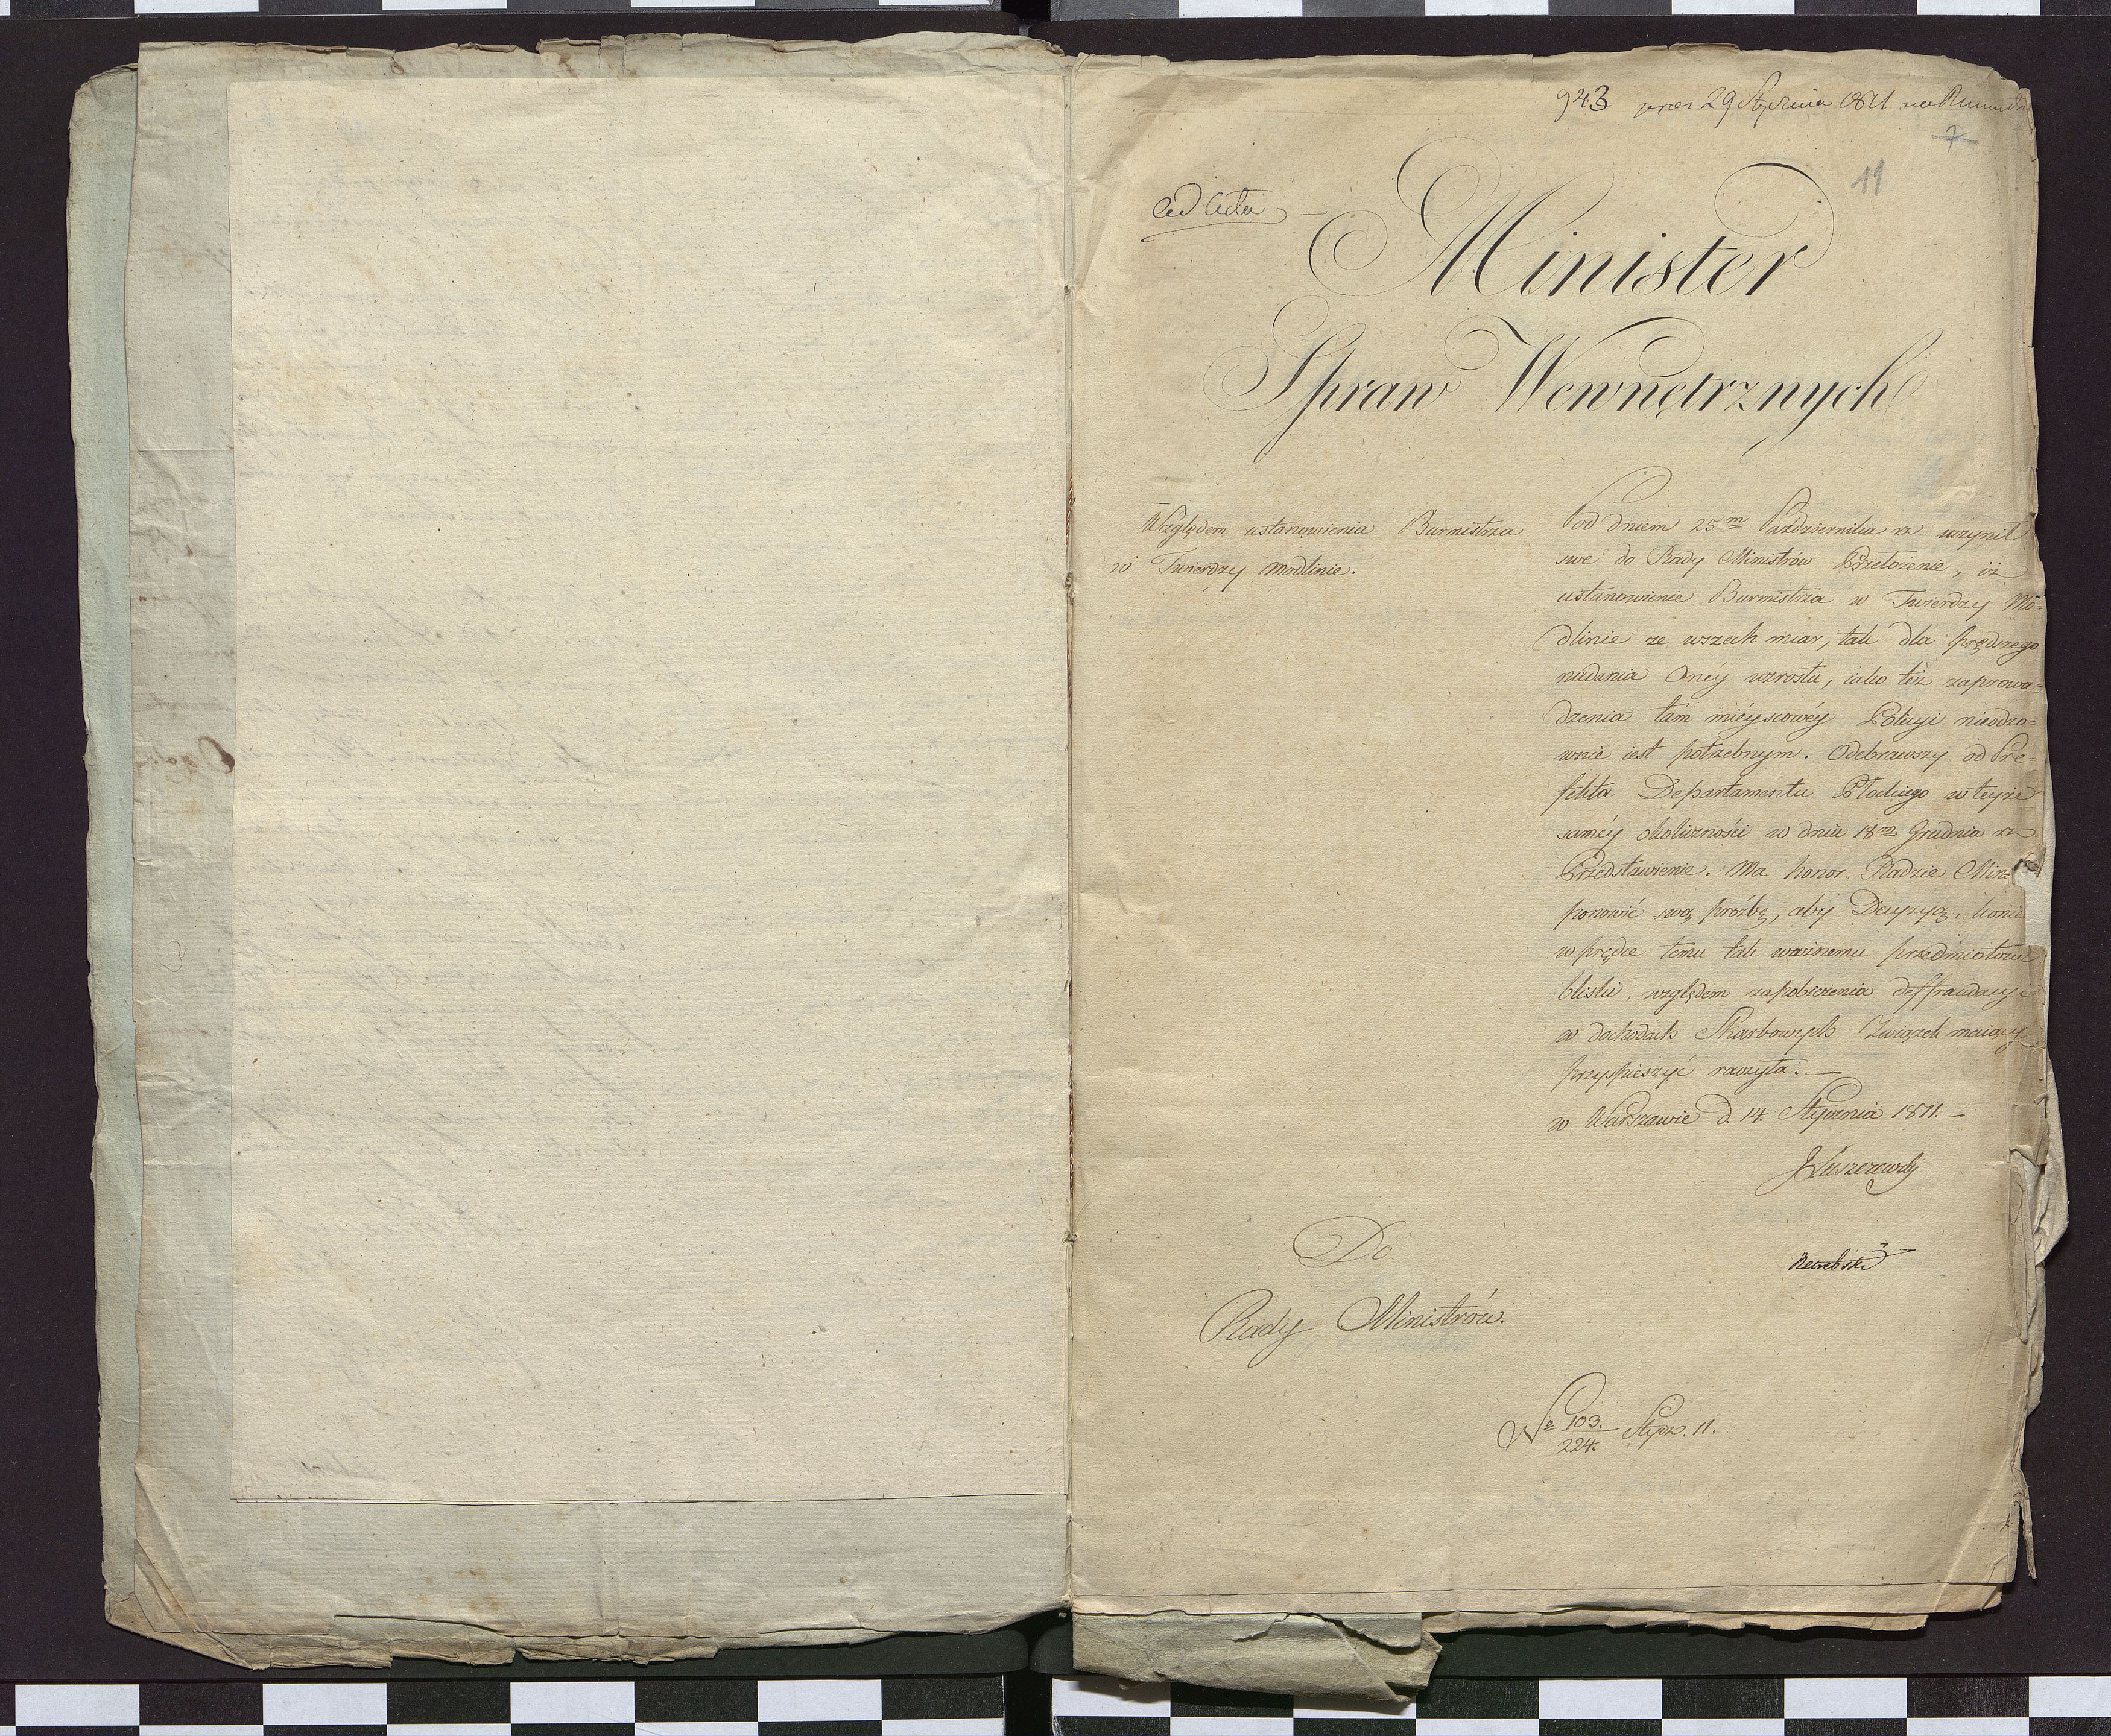 943 prez 29 Stycznia 1811
7
11
Ad Acta
Minister
Spraw Wewnętrznych
Względem ustanowienia Burmistrza
w Twierdzy Modlinie.
Pod dniem 25m Października rz. uczynił
swe do Rady Ministrów Przełożenie, iż
ustanowienie Burmistrza w Twierdzy Mo=
dlinie ze wszech miar, tak dla prędszego
nadania Onéy wzrostu, iako też zaprowa=
dzenia tam mieyscowéy Policyi nieodzo=
wnie iest potrzebnym. Odebrawszy od Pre=
fekta Departamentu Płockiego w teyże
saméy okoliczności w dniu 18m Grudnia rz.
Przedstawienie. Ma honor Radzie Min:
ponowić swą proźbę, aby Decyzyą, konie
w prędce temu tak ważnemu przedmiotowi
bliski, względem zapobieżenia deffraudacyi
w dochodach Skarbowych Związek maiący
przyspieszyć raczyła. —
w Warszawie d. 14. Stycznia 1811. —
JŁuszczewski
Do
Rady Ministrów.
No 103./224. Stycz. 11.